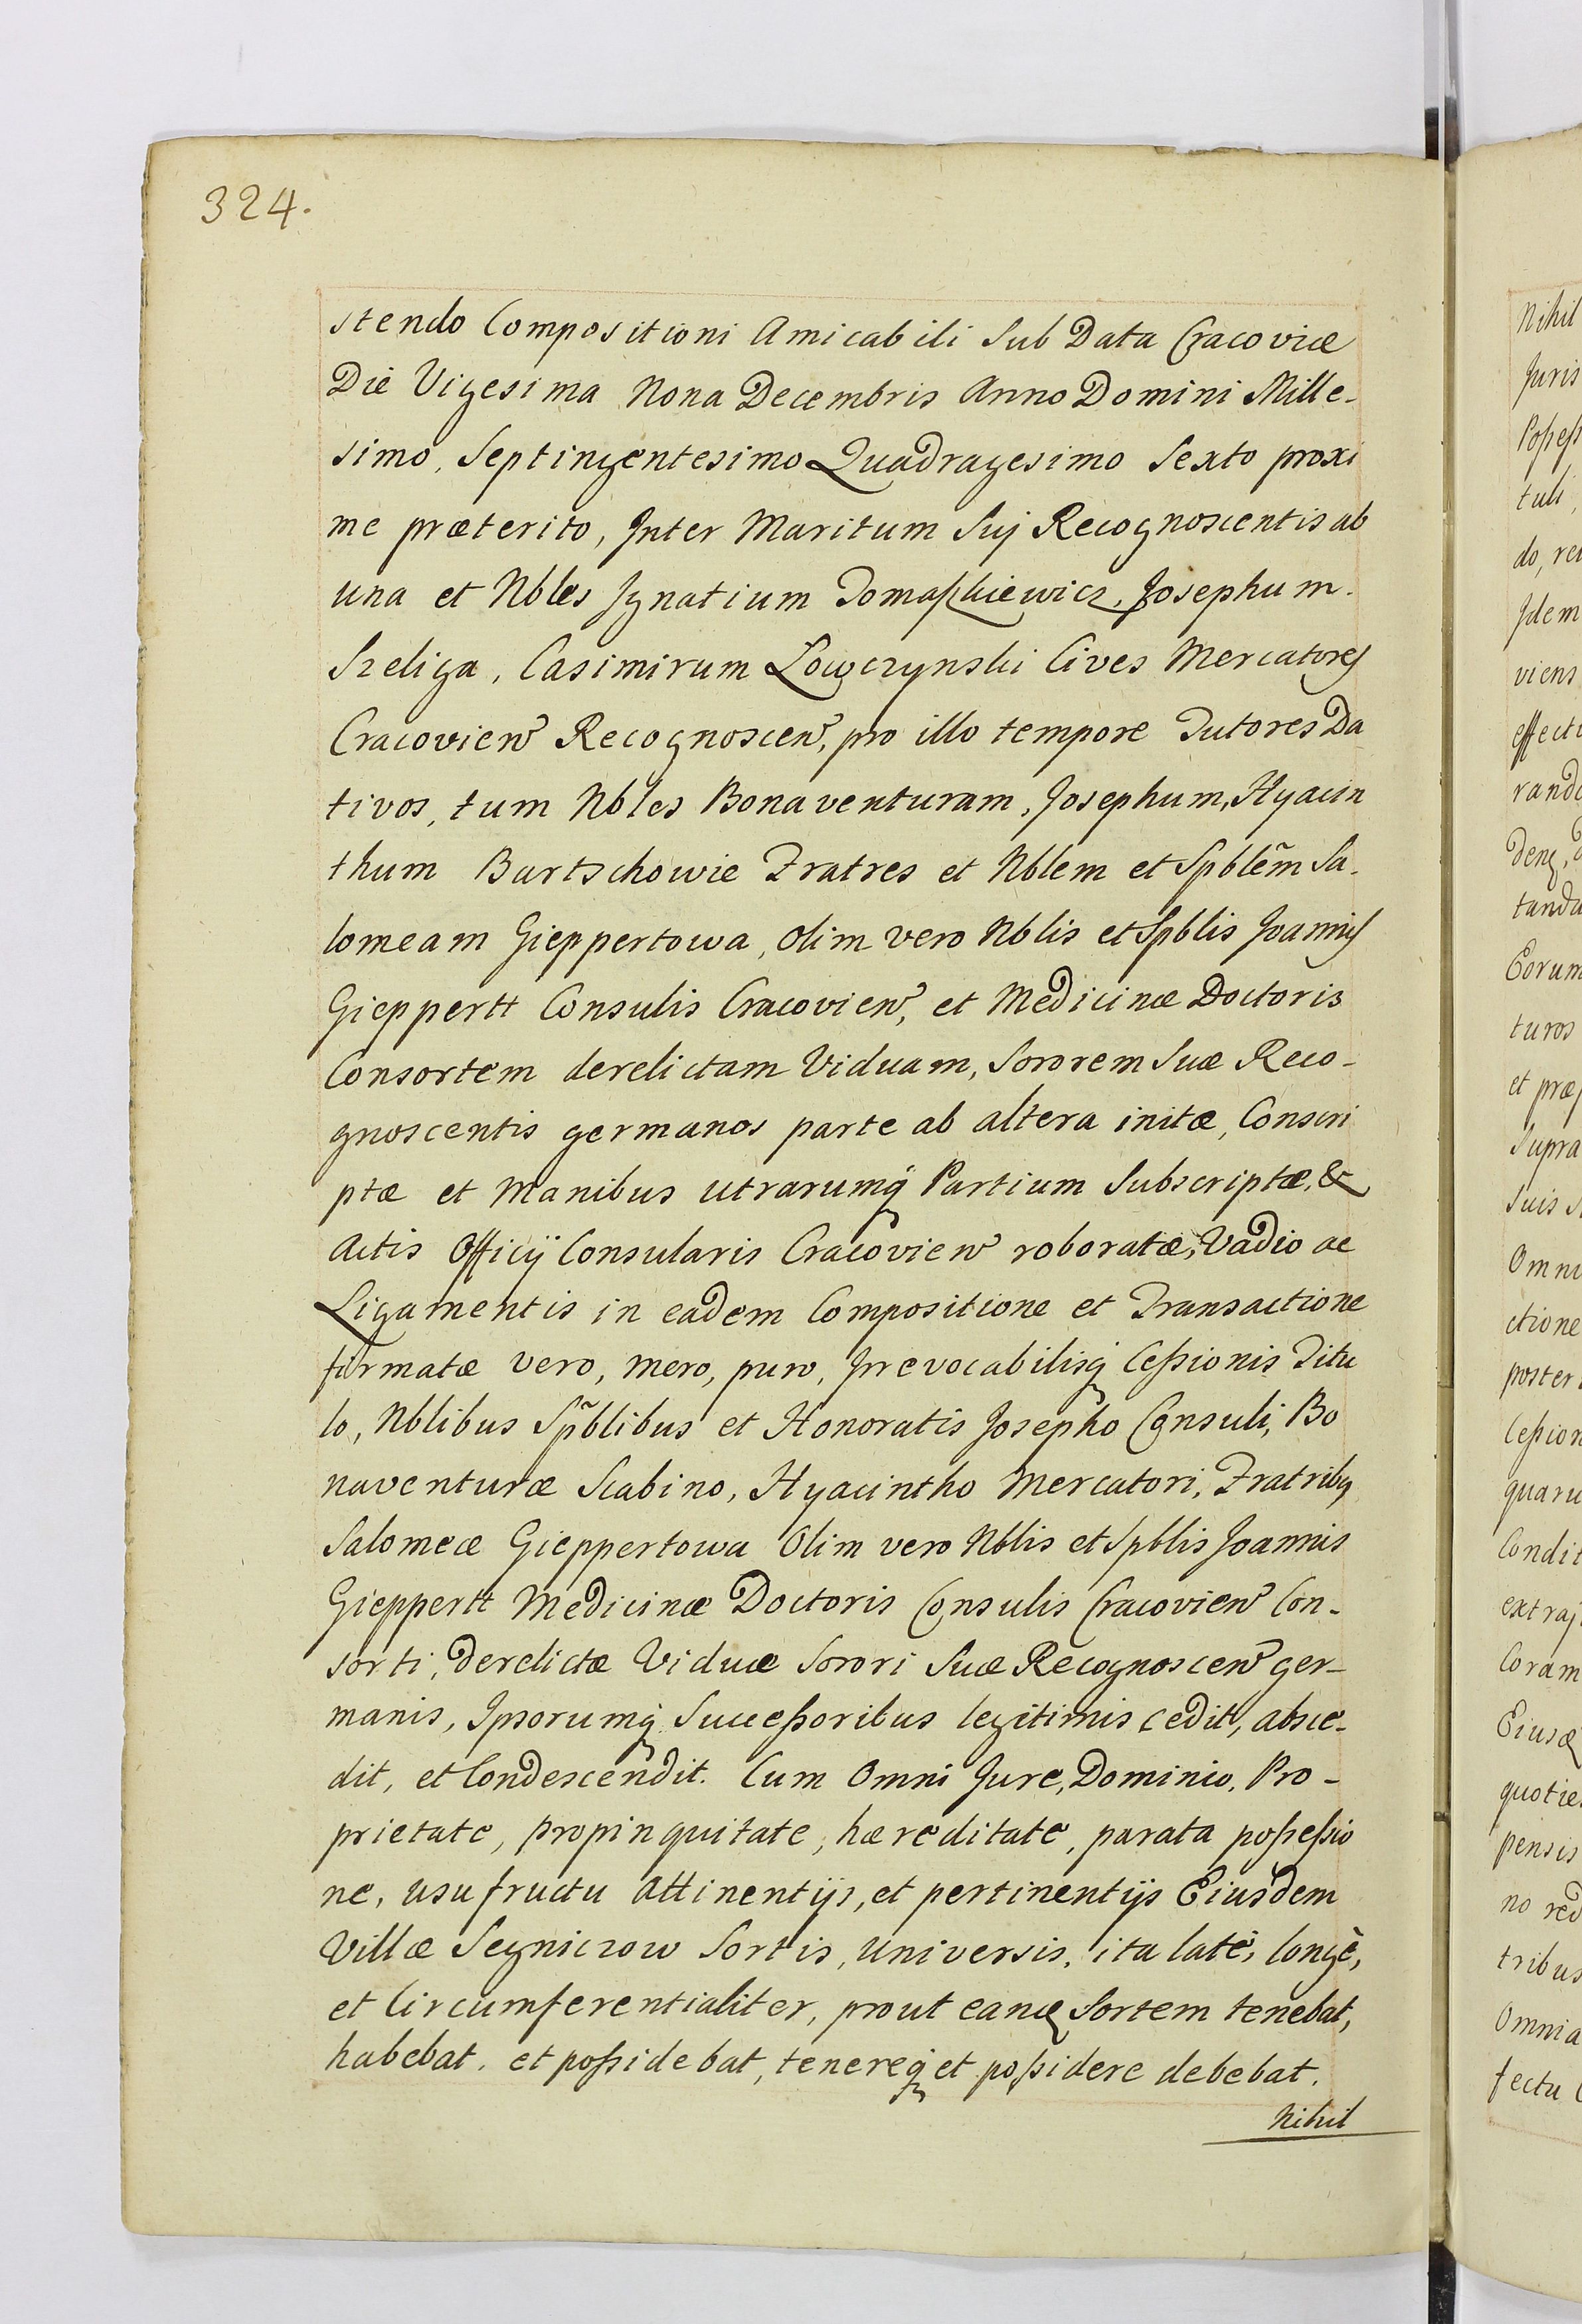 324.
stendo Compositioni Amicabili Sub Data Cracoviæ
Die Vigesima Nona Decembris Anno Domini Mille-
simo, Septingentesimo Quadragesimo Sexto proxi
me præterito, Inter Maritum Sui Recognoscentis ab
una et Nbles Ignatium Tomaszkiewicz, Josephum
Szeliga, Casimirum Lowczynski Cives Mercatores
Cracovien̄ Recognoscen̄, pro illo tempore Tutores Da
tivos, tum Nbles Bonaventuram, Josephum, Hyacin
thum Bartschowie Fratres et Nblem et Spblem̃ Sa-
lomeam Gieppertowa, Olim vero Nblis et Spblis Joannis
Gieppertt Consulis Cracovien̄, et Medicinæ Doctoris
Consortem derelictam Viduam, Sororem Suæ Reco-
gnoscentis germanos parte ab altera initæ, Conscri
ptæ et Manibus utrarumq̃ Partium Subscriptæ, &
Actis Officÿ Consularis Cracovien̄ roboratæ, Vadio ac
Ligamentis in eadem Compositione et Transactione
firmatæ vero, mero, puro, Irrevocabilisq̃ Cessionis Titu
lo, Nblibus Sp̃blibus et Honoratis Josepho Consuli, Bo
naventuræ Scabino, Hyacintho Mercatori, Fratribq
Salomeæ Gieppertowa Olim vero Nblis et Spblis Joannis
Gieppertt Medicinæ Doctoris Consulis Cracovien̄ Con-
sorti, derelictæ Viduæ Sorori Suæ Recognoscen̄ ger-
manis, Ipsorumq̃ Successoribus legitimis cedit, absce-
dit, et Condescendit. Cum Omni Jure, Dominio, Pro-
prietate, propinquitate, hæreditate, parata possessio
ne, usufructu Attinentijs, et pertinentijs Eiusdem
Villæ Segniczow Sortis, universis, ita latè, longè,
et Circumferentialiter, prout eanq Sortem tenebat,
habebat, et possidebat, tenereq̃ et possidere debebat.
Nihil
Nihil
Juris
Possess
tuli,
do, re
Idem
viens
effectu
rando
denq,
tanda
Eorum
turos
et præ
Supra
Suis
Omni
ctione
poster
Cession
quaru
Condit
extraj
Coram
quotie
pensis
no red
tribus
Omnia
fectu